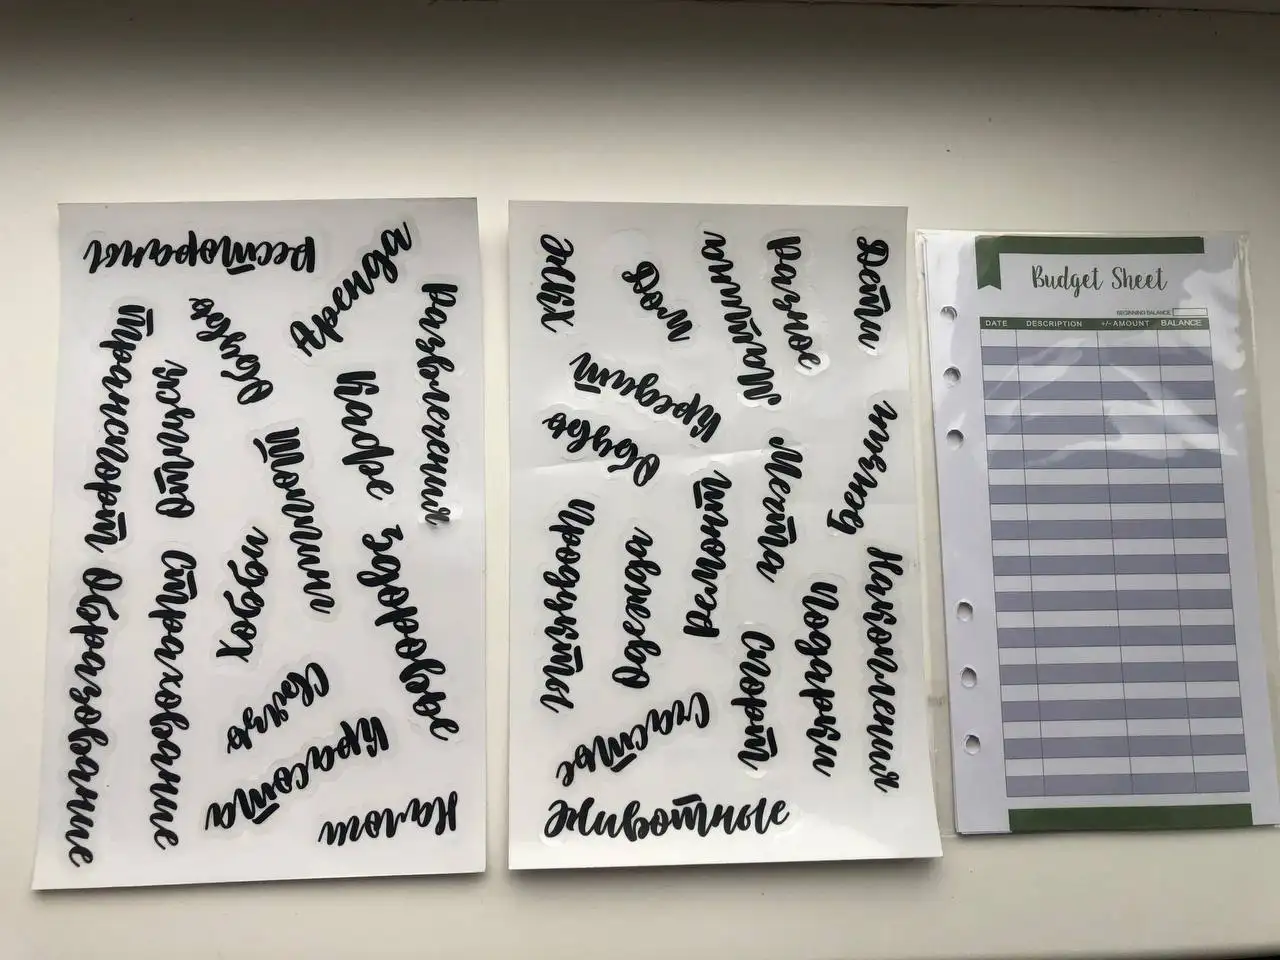 рестораны
Аренда
развлечения
Обувь
Транспорт
Отпуск
Кафе
Шоппинг
Хобби
здоровье
Образование
Страхование
Связь
Красота
Налоги
ЖКХ
Уход
Машина
разное
Дети
Кредит
Обувь
Бензин
Мечта
ремонт
Продукты
Одежда
Накопления
Подарки
Спорт
Счастье
Животные
Budget Sheet
BEGINNING BALANCE
DATE DESCRIPTION +/- AMOUNT BALANCE